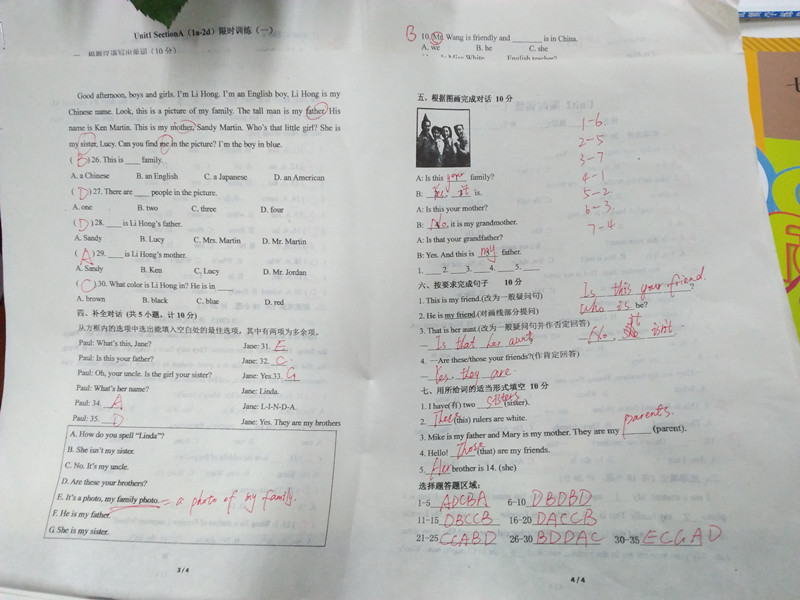 Unit1 SectionA（1a-2d）限时训练（一）
Good afternoon, boys and girls. I'm Li Hong. I'm an English boy. Li Hong is my
Chinese name. Look, this is a picture of my family. The tall man is my father. His
name is Ken Martin. This is my mother, Sandy Martin. Who's that little girl? She is
my sister, Lucy. Can you find me in the picture? I'm the boy in blue.
( B ) 26. This is ____ family.
A. a Chinese B. an English C. a Japanese D. an American
( D ) 27. There are ____ people in the picture.
A. one B. two C. three D. four
( D ) 28. ____ is Li Hong's father.
A. Sandy B. Lucy C. Mrs. Martin D. Mr. Martin
( A ) 29. ____ is Li Hong's mother.
A. Sandy B. Ken C. Lucy D. Mr. Jordan
( C ) 30. What color is Li Hong in? He is in ____
A. brown B. black C. blue D. red
四、补全对话（共5小题，计10分）
从方框内的选项中选出能填入空白处的最佳选项。其中有两项为多余项。
Paul: What's this, Jane? Jane: 31. E
Paul: Is this your father? Jane: 32. C
Paul: Oh, your uncle. Is the girl your sister? Jane: Yes.33. G
Paul: What's her name? Jane: Linda.
Paul: 34. A Jane: L-I-N-D-A.
Paul: 35. D Jane: Yes. They are my brothers
A. How do you spell "Linda"?
B. She isn't my sister.
C. No. It's my uncle.
D. Are these your brothers?
E. It's a photo, my family photo. = a photo of my family.
F. He is my father.
G. She is my sister.
3 / 4
B 10. Mr. Wang is friendly and ____ is in China.
A. we B. he C. she
五、根据图画完成对话 10分
1-6
2-5
3-7
4-1
5-2
6-3
7-4
A: Is this your family?
B: Yes, it is.
A: Is this your mother?
B: No, it is my grandmother.
A: Is that your grandfather?
B: Yes. And this is my father.
1. ____ 2. ____ 3. ____ 4. ____ 5. ____
六、按要求完成句子 10分
1. This is my friend.(改为一般疑问句) Is this your friend ?
2. He is my friend.(对画线部分提问) Who is he?
3. That is her aunt.(改为一般疑问句并作否定回答)
— Is that her aunt — No, it isn't
4. —Are these/those your friends?(作肯定回答)
— Yes, they are
七、用所给词的适当形式填空 10分
1. I have(有) two sisters (sister).
2. These (this) rulers are white.
3. Mike is my father and Mary is my mother. They are my parents. (parent).
4. Hello! Those (that) are my friends.
5. Her brother is 14. (she)
选择题答题区域：
1-5 ADCBA 6-10 DBDBD
11-15 DBCCB 16-20 DACCB
21-25 CCABD 26-30 BDDAC 30-35 ECGAD
4 / 4